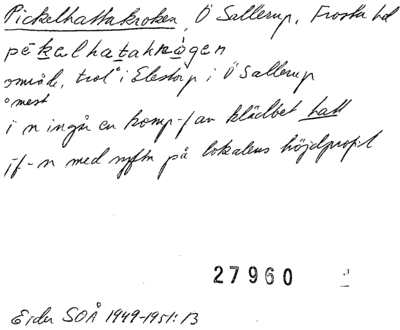 Pickelhattakroken, Ö Sallerup, Frosta hd
pekalhatakrågen
område, trol i Elestorp i Ö Sallerup
omest
i n ingår en komp-f av klädbet hatt
jf-n med syftn på lokalens höjdprofil
27960
Eider SOÅ 1949-1951:13